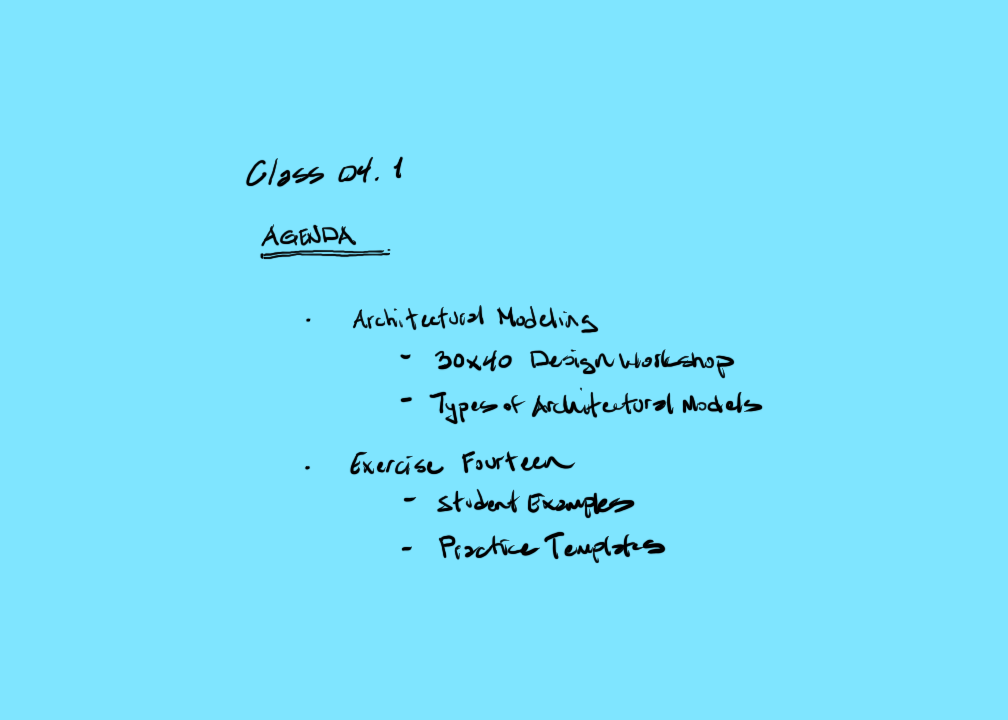 Class 04.1
AGENDA
· Architectural Modeling
- 30x40 Design Workshop
- Types of Architectural Models
· Exercise Fourteen
- Student Examples
- Practice Templates